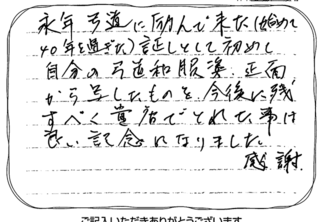 永年弓道に励んで来た(始めて
40年を過ぎた)証しとして初めて
自分の弓道和服姿、正面
から写したものを、今後に残
すべく貴店でとれた事は
良い記念になりました。
感謝
ご記入いただきありがとうございます